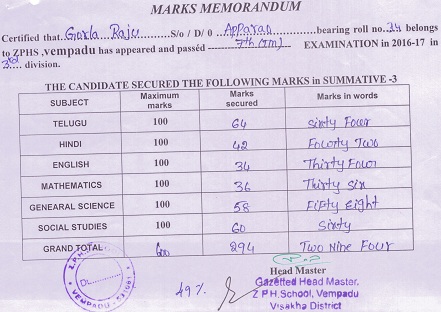 MARKS MEMORANDUM
Certified that Gorla Raju S/o / D/0 Apparao bearing roll no. 24 belongs
to ZPHS ,vempadu has appeared and passed 7th (TM) EXAMINATION in 2016-17 in
3rd division.
THE CANDIDATE SECURED THE FOLLOWING MARKS in SUMMATIVE -3
SUBJECT Maximum marks Marks secured Marks in words
TELUGU 100 64 sixty Four
HINDI 100 42 Fourty Two
ENGLISH 100 34 Thirty Four
MATHEMATICS 100 36 Thirty Six
GENEARAL SCIENCE 100 58 Fifty Eight
SOCIAL STUDIES 100 60 Sixty
GRAND TOTAL 600 294 Two Nine Four
Head Master
49%
Gazetted Head Master,
Z P H School, Vempadu
Visakha District
Z.P.H.
VEMPADU